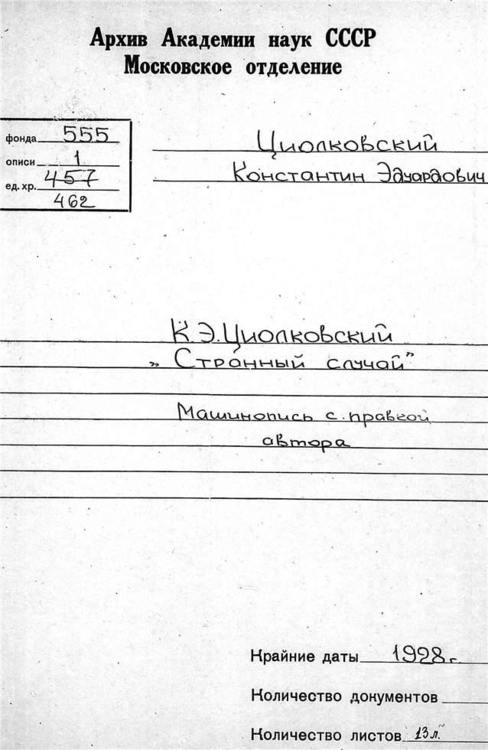 Архив Академии наук СССР
Московское отделение
фонда 555
описи 1
ед. хр. 457
462
Циолковский
Константин Эдуардович
К.Э.Циолковский
„Странный случай"
Машинопись с правкой
автора
Крайние даты 1928 г.
Количество документов
Количество листов 13 л.